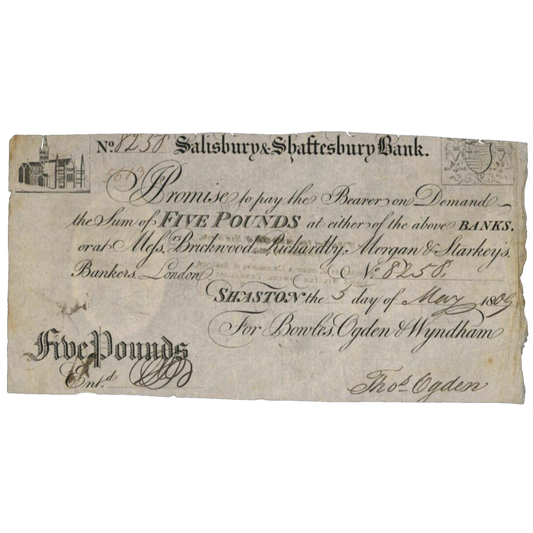 No 8258 Salisbury & Shaftesbury Bank.
I Promise to pay the Bearer on Demand
the Sum of FIVE POUNDS at either of the above BANKS,
or at Mess. Brickwood, Richardby, Morgan & Starkey's,
Bankers, London No 8258
SHASTON the 5 day of May 1809
For Bowles, Ogden & Wyndham
Five Pounds
Ent.d
Thos. Ogden